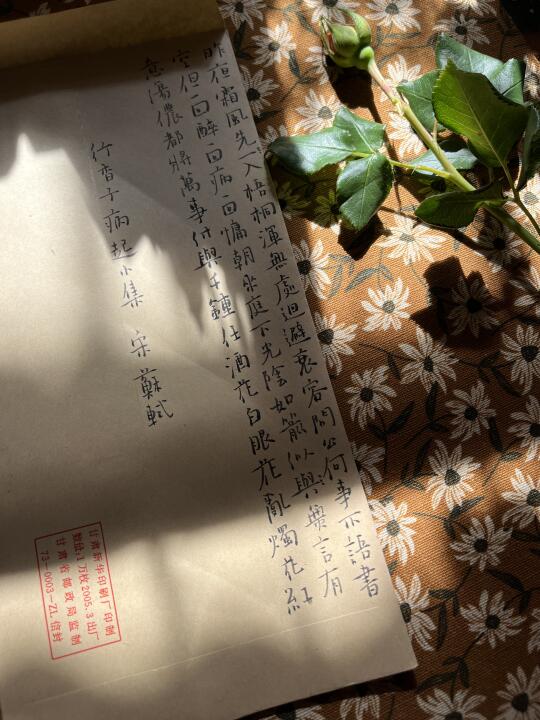 昨夜霜風先入梧桐渾無處迴避衰容問公何事不語書
空但一回醉一回病一回慵朝來庭下光陰如箭似與無言有
意傷儂都將萬事付與千鍾任酒花白眼花亂燭花紅
行香子病起小集 宋 蘇軾
甘肃新华印刷厂印制
数量:1万枚2005.3出厂
甘肃省邮政局监制
73-0003-ZL信封